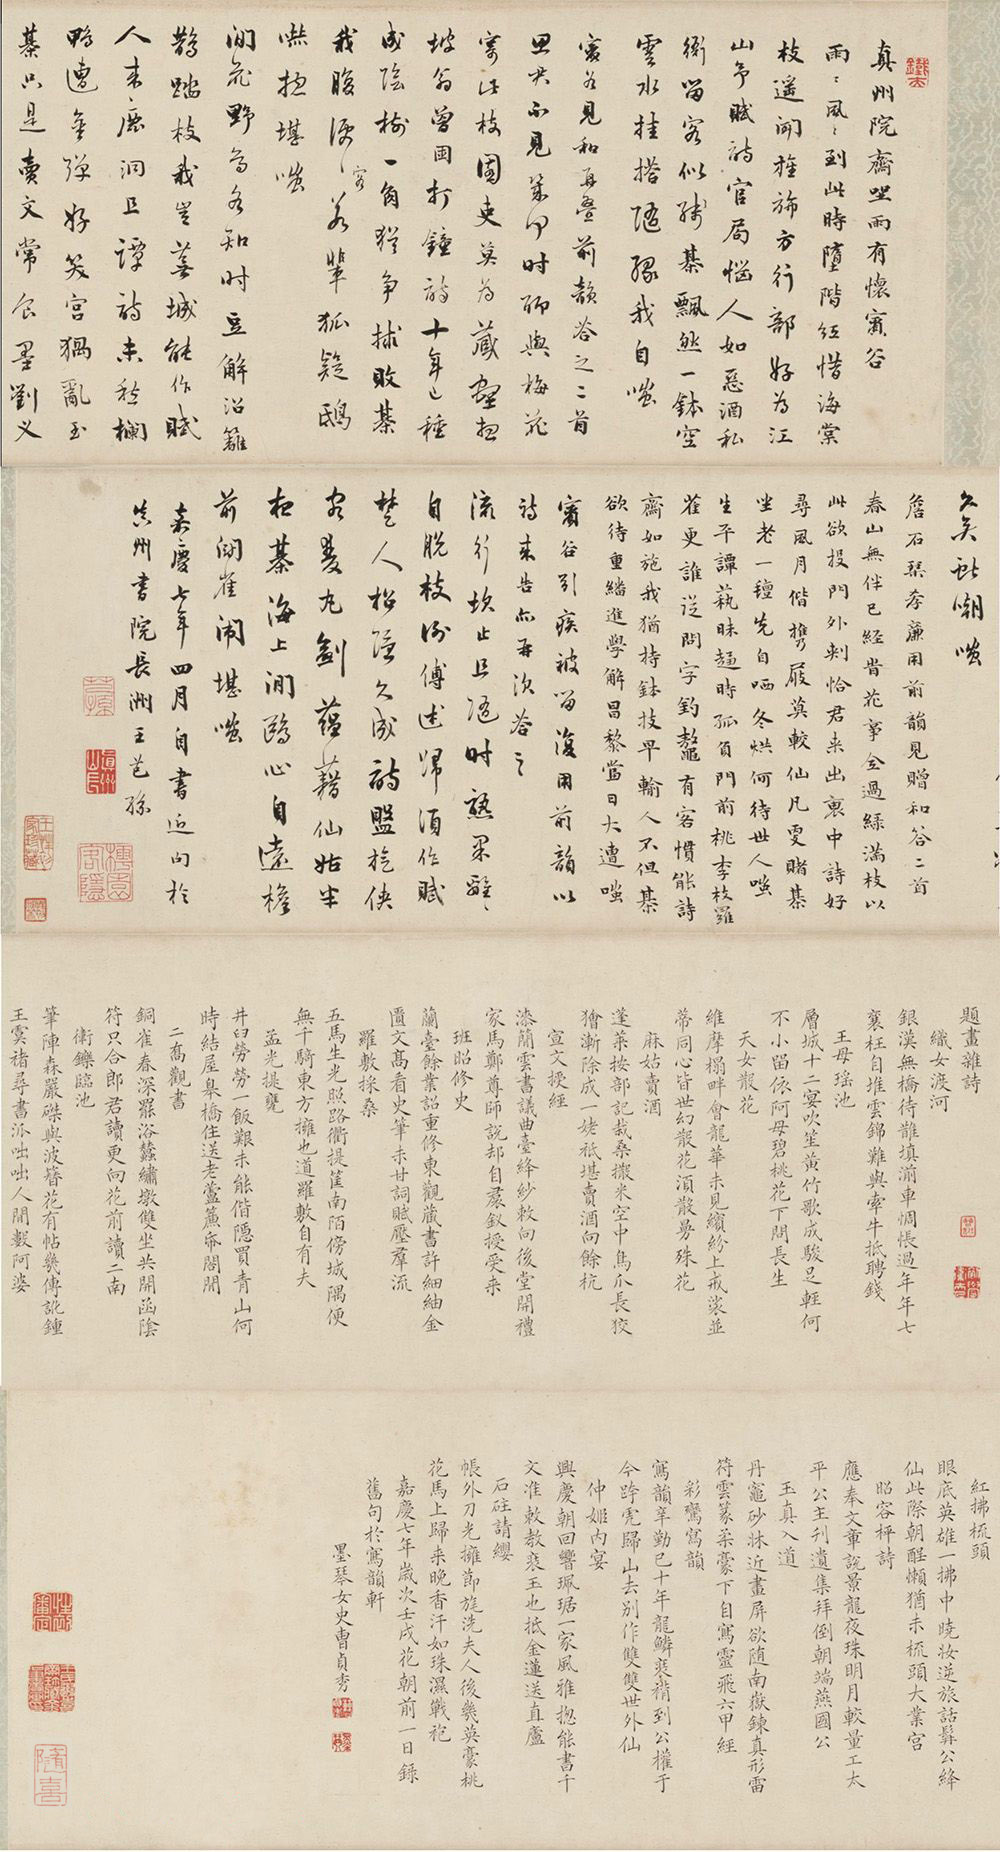 真州院齋坐雨有懷賓谷
雨〻風〻到此時墮階紅惜海棠
枝遥開旌旆方行部好為江
山予賦詩官局惱人如惡酒私
衙留客似殘棊飄然一鉢空
雲水挂搭隨緣我自嗤
賓谷見和再疊前韻答之二首
思君不見策何時聊與梅花
寄此枝園吏莫為藏
坡翁曾因打鐘詩十年已種
成陰樹一角猶爭救敗棊
我腹便便客輩狐疑鴟
嚇想堪嗤
閒花野鳥各知时豆解沿籬
鵲踏枝我豈蕪城能作賦
人来鹿洞且譚詩未愁欄
鴨遭金彈好笑宮猧亂玉
棊只是賣文常食墨劉义
久矣嘲嗤
詹石琹孝廉用前韻見贈和答二首
春山無伴已經時花事全過緑滿枝以
此欲投門外刺恰君来出裏中詩好
尋風月偕携屐莫較仙凡更賭棊
坐老一氊先自哂冬烘何待世人嗤
生平譚蓺昧趨時孤負門前桃李枝羅
雀更誰从問字釣鼇有客慣能詩
齋如施我猶持鉢技早輸人不但棊
欲待重繙進學解昌黎當日大遭嗤
賓谷引疾被留復用前韻以
詩来告亦再次答之
流行坎止且隨时熟果離〻
自脱枝例傅述歸須作賦
楚人招隱久成詩盤旋俠
客雙丸劍藴藉仙姑半
夜棊海上閒鷗心自遠檐
前闘雀鬧堪嗤
嘉慶七年四月自書近句於
真州書院長洲王芑孫
題畫雜詩
織女渡河
銀漢無橋待鵲填湔車惆悵過年年七
襄枉自堆雲錦難與牽牛抵聘錢
王母瑶池
層城十二宴吹笙黄竹歌成駿足輕何
不小留依阿母碧桃花下問長生
天女散花
維摩榻畔會龍華未見繽紛上戒裟並
蒂同心皆世幻散花須散曼殊花
麻姑賣酒
蓬莱按部記栽桑撒米空中鳥爪長狡
獪漸除成一姥祗堪賣酒向餘杭
宣文授經
漆蕳雲書議曲臺絳紗敕向後堂開禮
家馬鄭尊師說却自裙釵授受来
班昭修史
蘭臺餘業詔重修東觀藏書許細紬金
匱文高看史筆未甘詞賦壓羣流
羅敷採桑
五馬生光照路衢提筐南陌傍城隅便
無千騎東方擁也道羅敷自有夫
孟光提甕
井臼勞勞一飯艱未能偕隠買青山何
時結屋皋橋住送老蘆簾㡌閤閒
二喬觀書
銅雀春深罷浴蠶繡墩雙坐共開函陰
符只合郎君讀更向花前讀二南
衛鑠臨池
筆陣森嚴磔與波簪花有帖幾傳訛鍾
王虞褚尋書派咄咄人間數阿婆
紅拂梳頭
眼底英雄一拂中曉妝逆旅話髯公絳
仙此際朝酲懶猶未梳頭大業宮
昭容秤詩
應奉文章說景龍夜珠明月較量工太
平公主刊遺集拜倒朝端燕國公
玉真入道
丹竈砂牀近畫屏欲随南嶽鍊真形雷
符雲篆柔豪下自寫靈飛六甲經
彩鸞寫韻
寫韻辛勤已十年龍鱗裝褙到公權于
今跨虎歸山去別作雙雙世外仙
仲姬内宴
興慶朝回響珮琚一家風雅揔能書千
文准敕教裝玉也抵金蓮送直廬
石砫請纓
帳外刀光擁節旄洗夫人後幾英豪桃
花馬上歸来晚香汗如珠濕戰袍
嘉慶七年歲次壬戌花朝前一日録
舊句於寫韻軒
墨琴女史曹貞秀